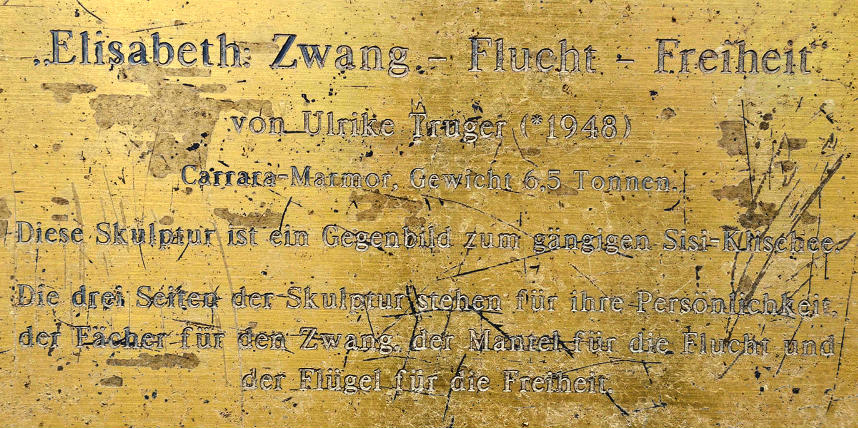 „Elisabeth: Zwang – Flucht – Freiheit“
von Ulrike Truger (*1948)
Carrara-Marmor, Gewicht 6,5 Tonnen.
Diese Skulptur ist ein Gegenbild zum gängigen Sisi-Klischee.
Die drei Seiten der Skulptur stehen für ihre Persönlichkeit,
der Fächer für den Zwang, der Mantel für die Flucht und
der Flügel für die Freiheit.